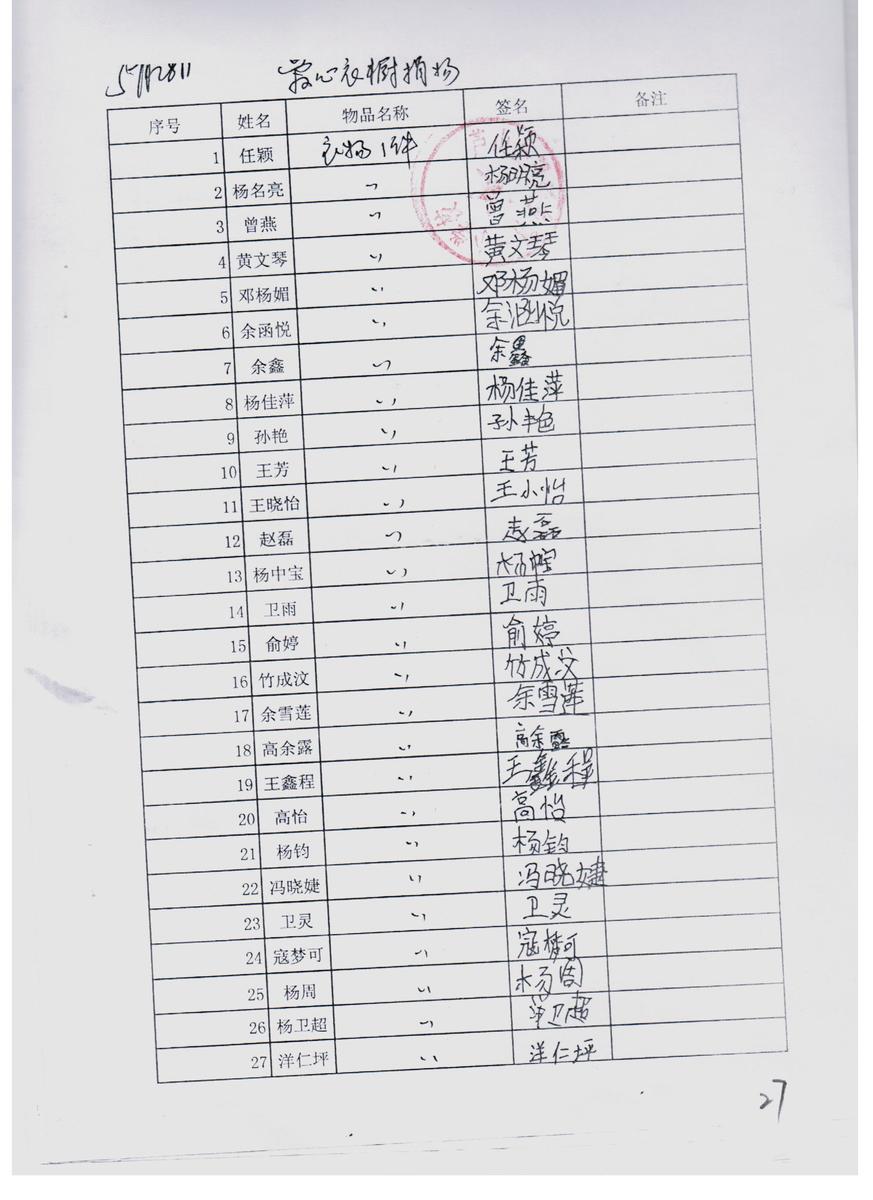 爱心衣橱捐物
序号 姓名 物品名称 签名 备注
1 任颖 衣物1件 任颖
2 杨名亮 〃 杨明亮
3 曾燕 〃 曾燕
4 黄文琴 〃 黄文琴
5 邓杨媚 〃 邓杨媚
6 余函悦 〃 余涵悦
7 余鑫 〃 余鑫
8 杨佳萍 〃 杨佳萍
9 孙艳 〃 孙艳
10 王芳 〃 王芳
11 王晓怡 〃 王小怡
12 赵磊 〃 赵磊
13 杨中宝 〃
14 卫雨 〃 卫雨
15 俞婷 〃 俞婷
16 竹成汶 〃 竹成汶
17 余雪莲 〃 余雪莲
18 高余露 〃 高余露
19 王鑫程 〃 王鑫程
20 高怡 〃 高怡
21 杨钧 〃 杨钧
22 冯晓婕 〃 冯晓婕
23 卫灵 〃 卫灵
24 寇梦可 〃 寇梦可
25 杨周 〃 杨周
26 杨卫超 〃 卫超
27 洋仁坪 〃 洋仁坪
27